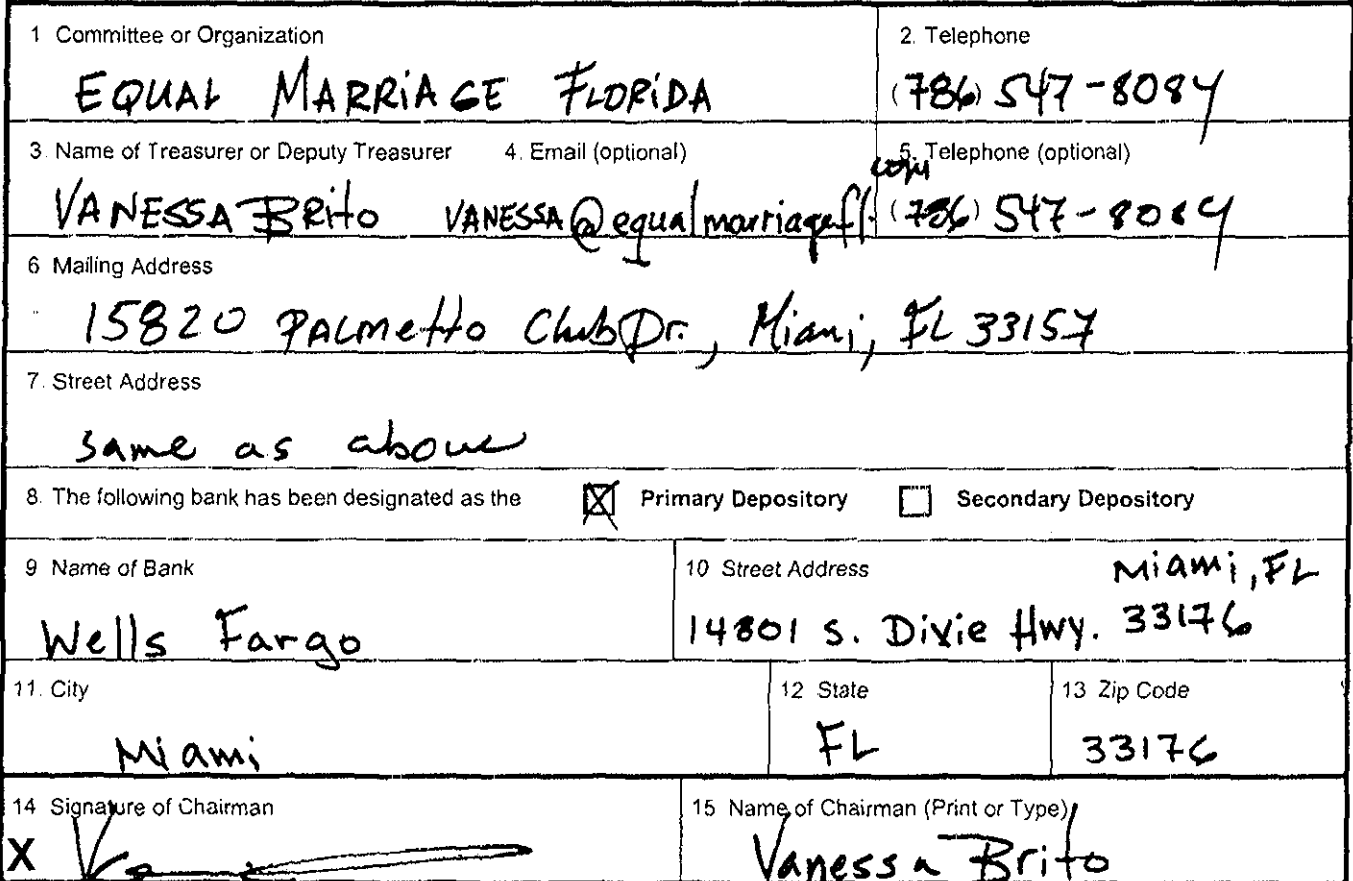 1 Committee or Organization
2. Telephone
EQUAL MARRIAGE FLORIDA
(786) 547-8084
3. Name of Treasurer or Deputy Treasurer 4. Email (optional)
5. Telephone (optional)
VANESSA BRito VANESSA@equalmarriagefl.com
(786) 547-8084
6 Mailing Address
15820 PALmetto Club Dr., Miami, FL 33157
7. Street Address
same as above
8. The following bank has been designated as the ☒ Primary Depository ☐ Secondary Depository
9 Name of Bank
Wells Fargo
10 Street Address
Miami, FL
14801 S. Dixie Hwy. 33176
11. City
Miami
12 State
FL
13 Zip Code
33176
14 Signature of Chairman
X
15 Name of Chairman (Print or Type)
Vanessa Brito